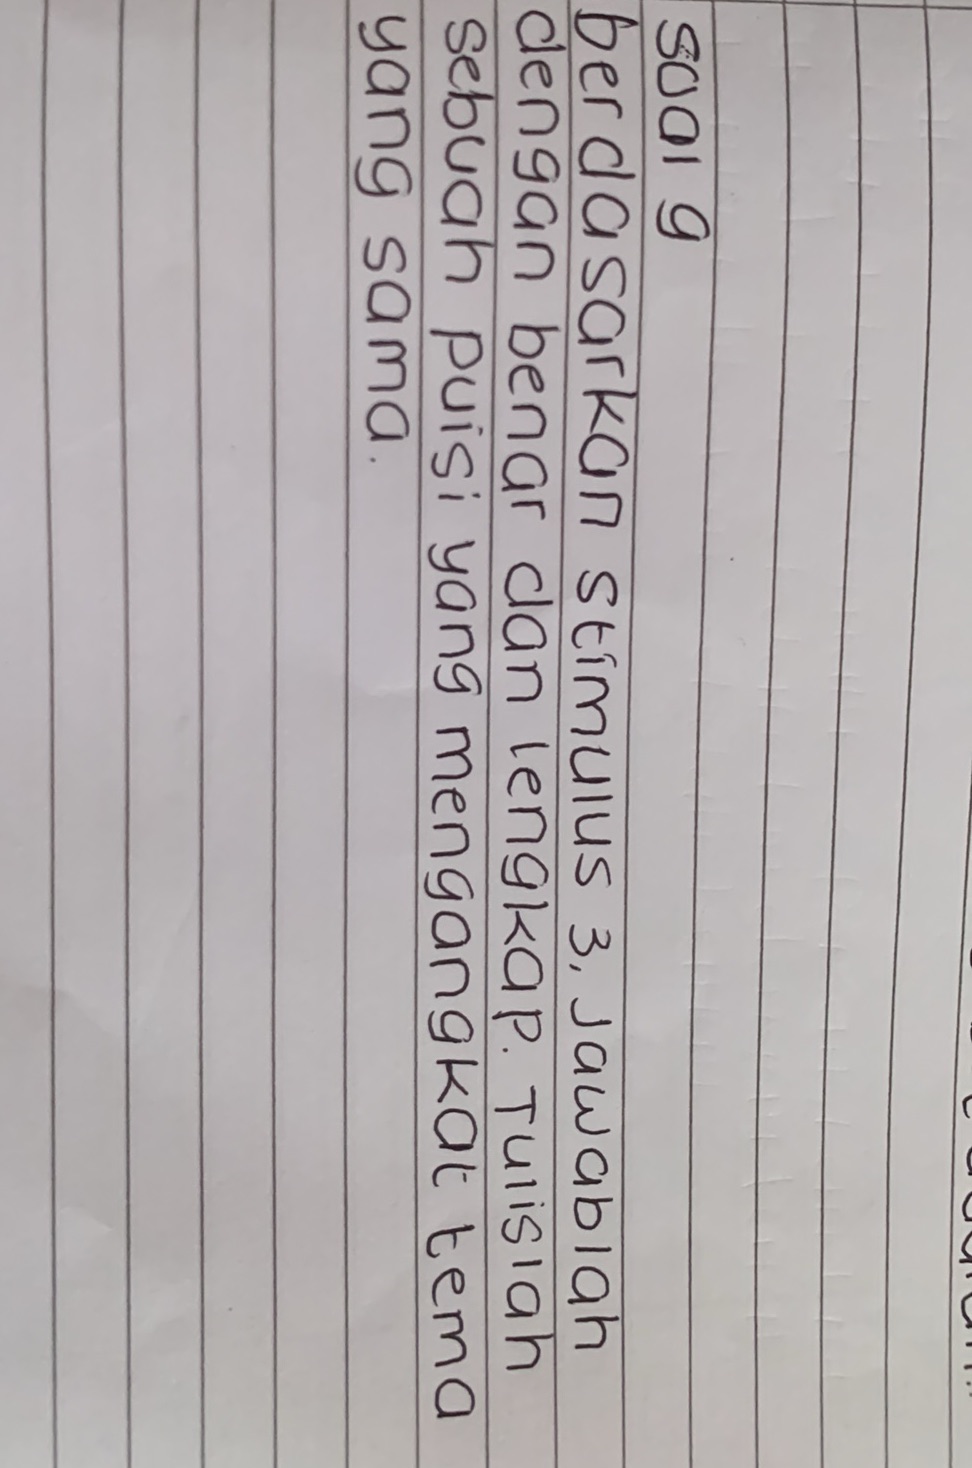 soal 9
berdasarkan stimulus 3, Jawablah
dengan benar dan lengkap. Tulislah
sebuah puisi yang mengangkat tema
yang sama.